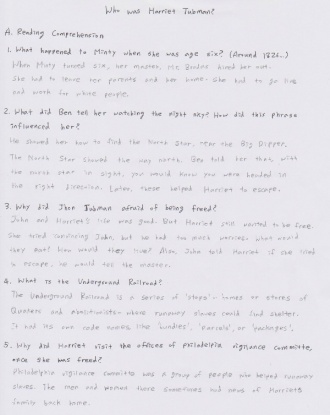 Who was Harriet Tubman?
A. Reading Comprehension
1. What happened to Minty when she was age six? (Around 1826..)
When Minty turned six, her master, Mr. Brodas hired her out.
She had to leave her parents and her home. She had to go live
and work for other people.
2. What did Ben tell her watching the night sky? How did this phrase
influenced her?
He showed her how to find the North Star, near the Big Dipper.
The North Star showed the way north. Ben told her that, with
the north star in sight, you would know you were headed in
the right direction. Later, these helped Harriet to escape.
3. Why did Jhon Tubman afraid of being freed?
John and Harriet's life was good. But Harriet still wanted to be free.
She tried convincing John, but he had too many worries. What would
they eat? How would they live? Also, John told Harriet if she tried
to escape, he would tell the master.
4. What is the Underground Railroad?
The Underground Railroad is a series of 'stops' - homes or stores of
Quakers and Abolitionists - where runaway slaves could find shelter.
It had its own code names like 'bundles', 'parcels', or 'packages'.
5. Why did Harriet visit the offices of philadelpia vigilance committe,
once she was freed?
Philadelphia vigilance committe was a group of people who helped runaway
slaves. The men and women there sometimes had news of Harriet's
family back home.